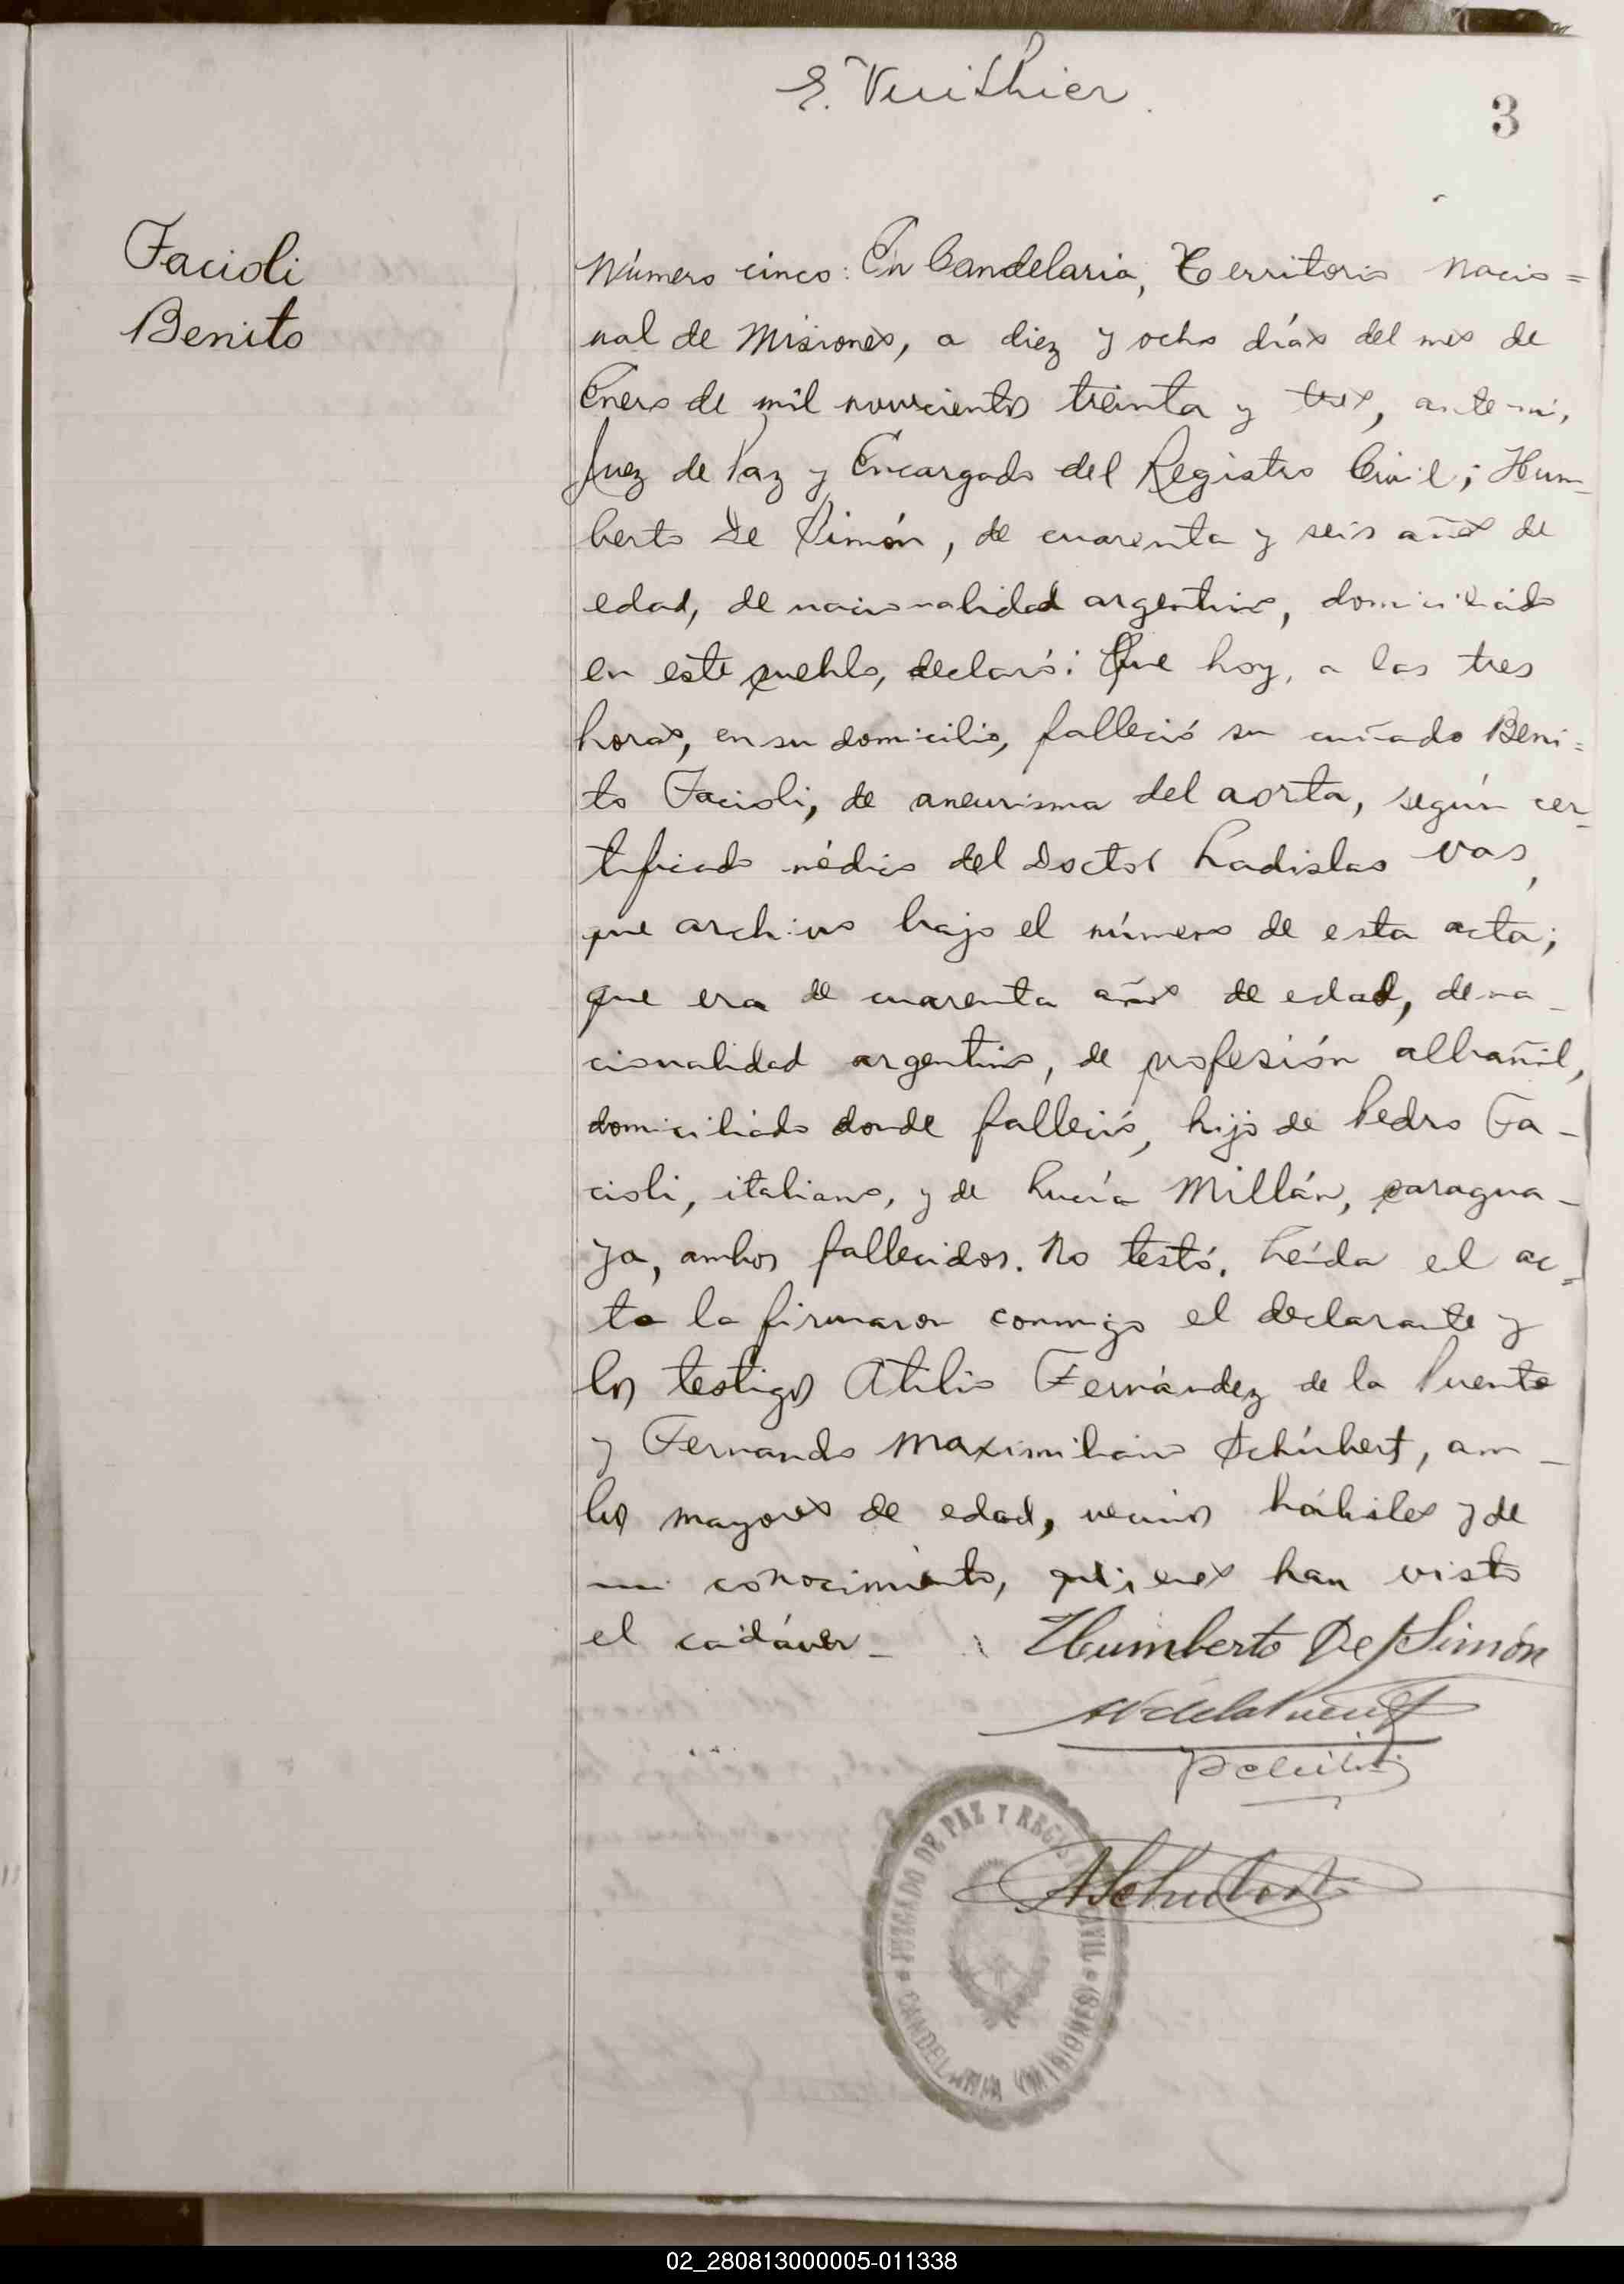 E. Vuithier
3
Facioli
Benito
Número cinco: En Candelaria, Territorio Nacio=
nal de Misiones, a diez y ocho días del mes de
Enero de mil novecientos treinta y tres, ante mi,
Juez de Paz y Encargado del Registro Civil; Hum_
berto De Simón, de cuarenta y seis años de
edad, de nacionalidad argentino, domiciliado
en este pueblo, declaró: Que hoy, a las tres
horas, en su domicilio, falleció su cuñado Beni=
to Facioli, de aneurisma del aorta, según cer_
tificado médico del Doctor Ladislao Vas,
que archivo bajo el número de esta acta;
que era de cuarenta años de edad, de na_
cionalidad argentino, de profesión albañil,
domiciliado donde falleció, hijo de Pedro Fa_
cioli, italiano, y de Lucía Millán, paragua_
ya, ambos fallecidos. No testó. Leída el ac=
ta la firmaron conmigo el declarante y
los testigos Atilio Fernández de la Puente
y Fernando Maximiliano Schúbert, am_
bos mayores de edad, vecinos hábiles y de
mi conocimiento, quienes han visto
el cadáver_
Humberto De Simón
delaPuente
ASchubert
JUZGADO DE PAZ Y REGISTRO CIVIL
CANDELARIA (MISIONES)
02_280813000005-011338